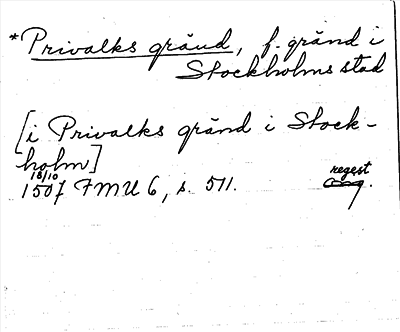 *Privalks gränd, f. gränd i
Stockholms stad
[i Privalks gränd i Stock-
holm]
18/10
1507 FMU 6, s. 511. regest